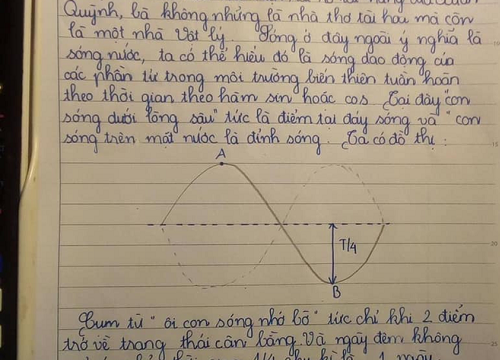 Quỳnh, bà không những là nhà thơ tài hoa mà còn
là một nhà Vật lý. Sóng ở đây ngoài ý nghĩa là
sóng nước, ta có thể hiểu đó là sóng dao động của
các phần tử trong môi trường biến thiên tuần hoàn
theo thời gian theo hàm sin hoặc cos. Tại đây "con
sóng dưới lòng sâu" tức là điểm tại đáy sóng và "con
sóng trên mặt nước là đỉnh sóng. Ta có đồ thị:
A
T/4
B
Cụm từ "ôi con sóng nhớ bờ" tức chỉ khi 2 điểm
trở về trạng thái cân bằng. Và ngày đêm không